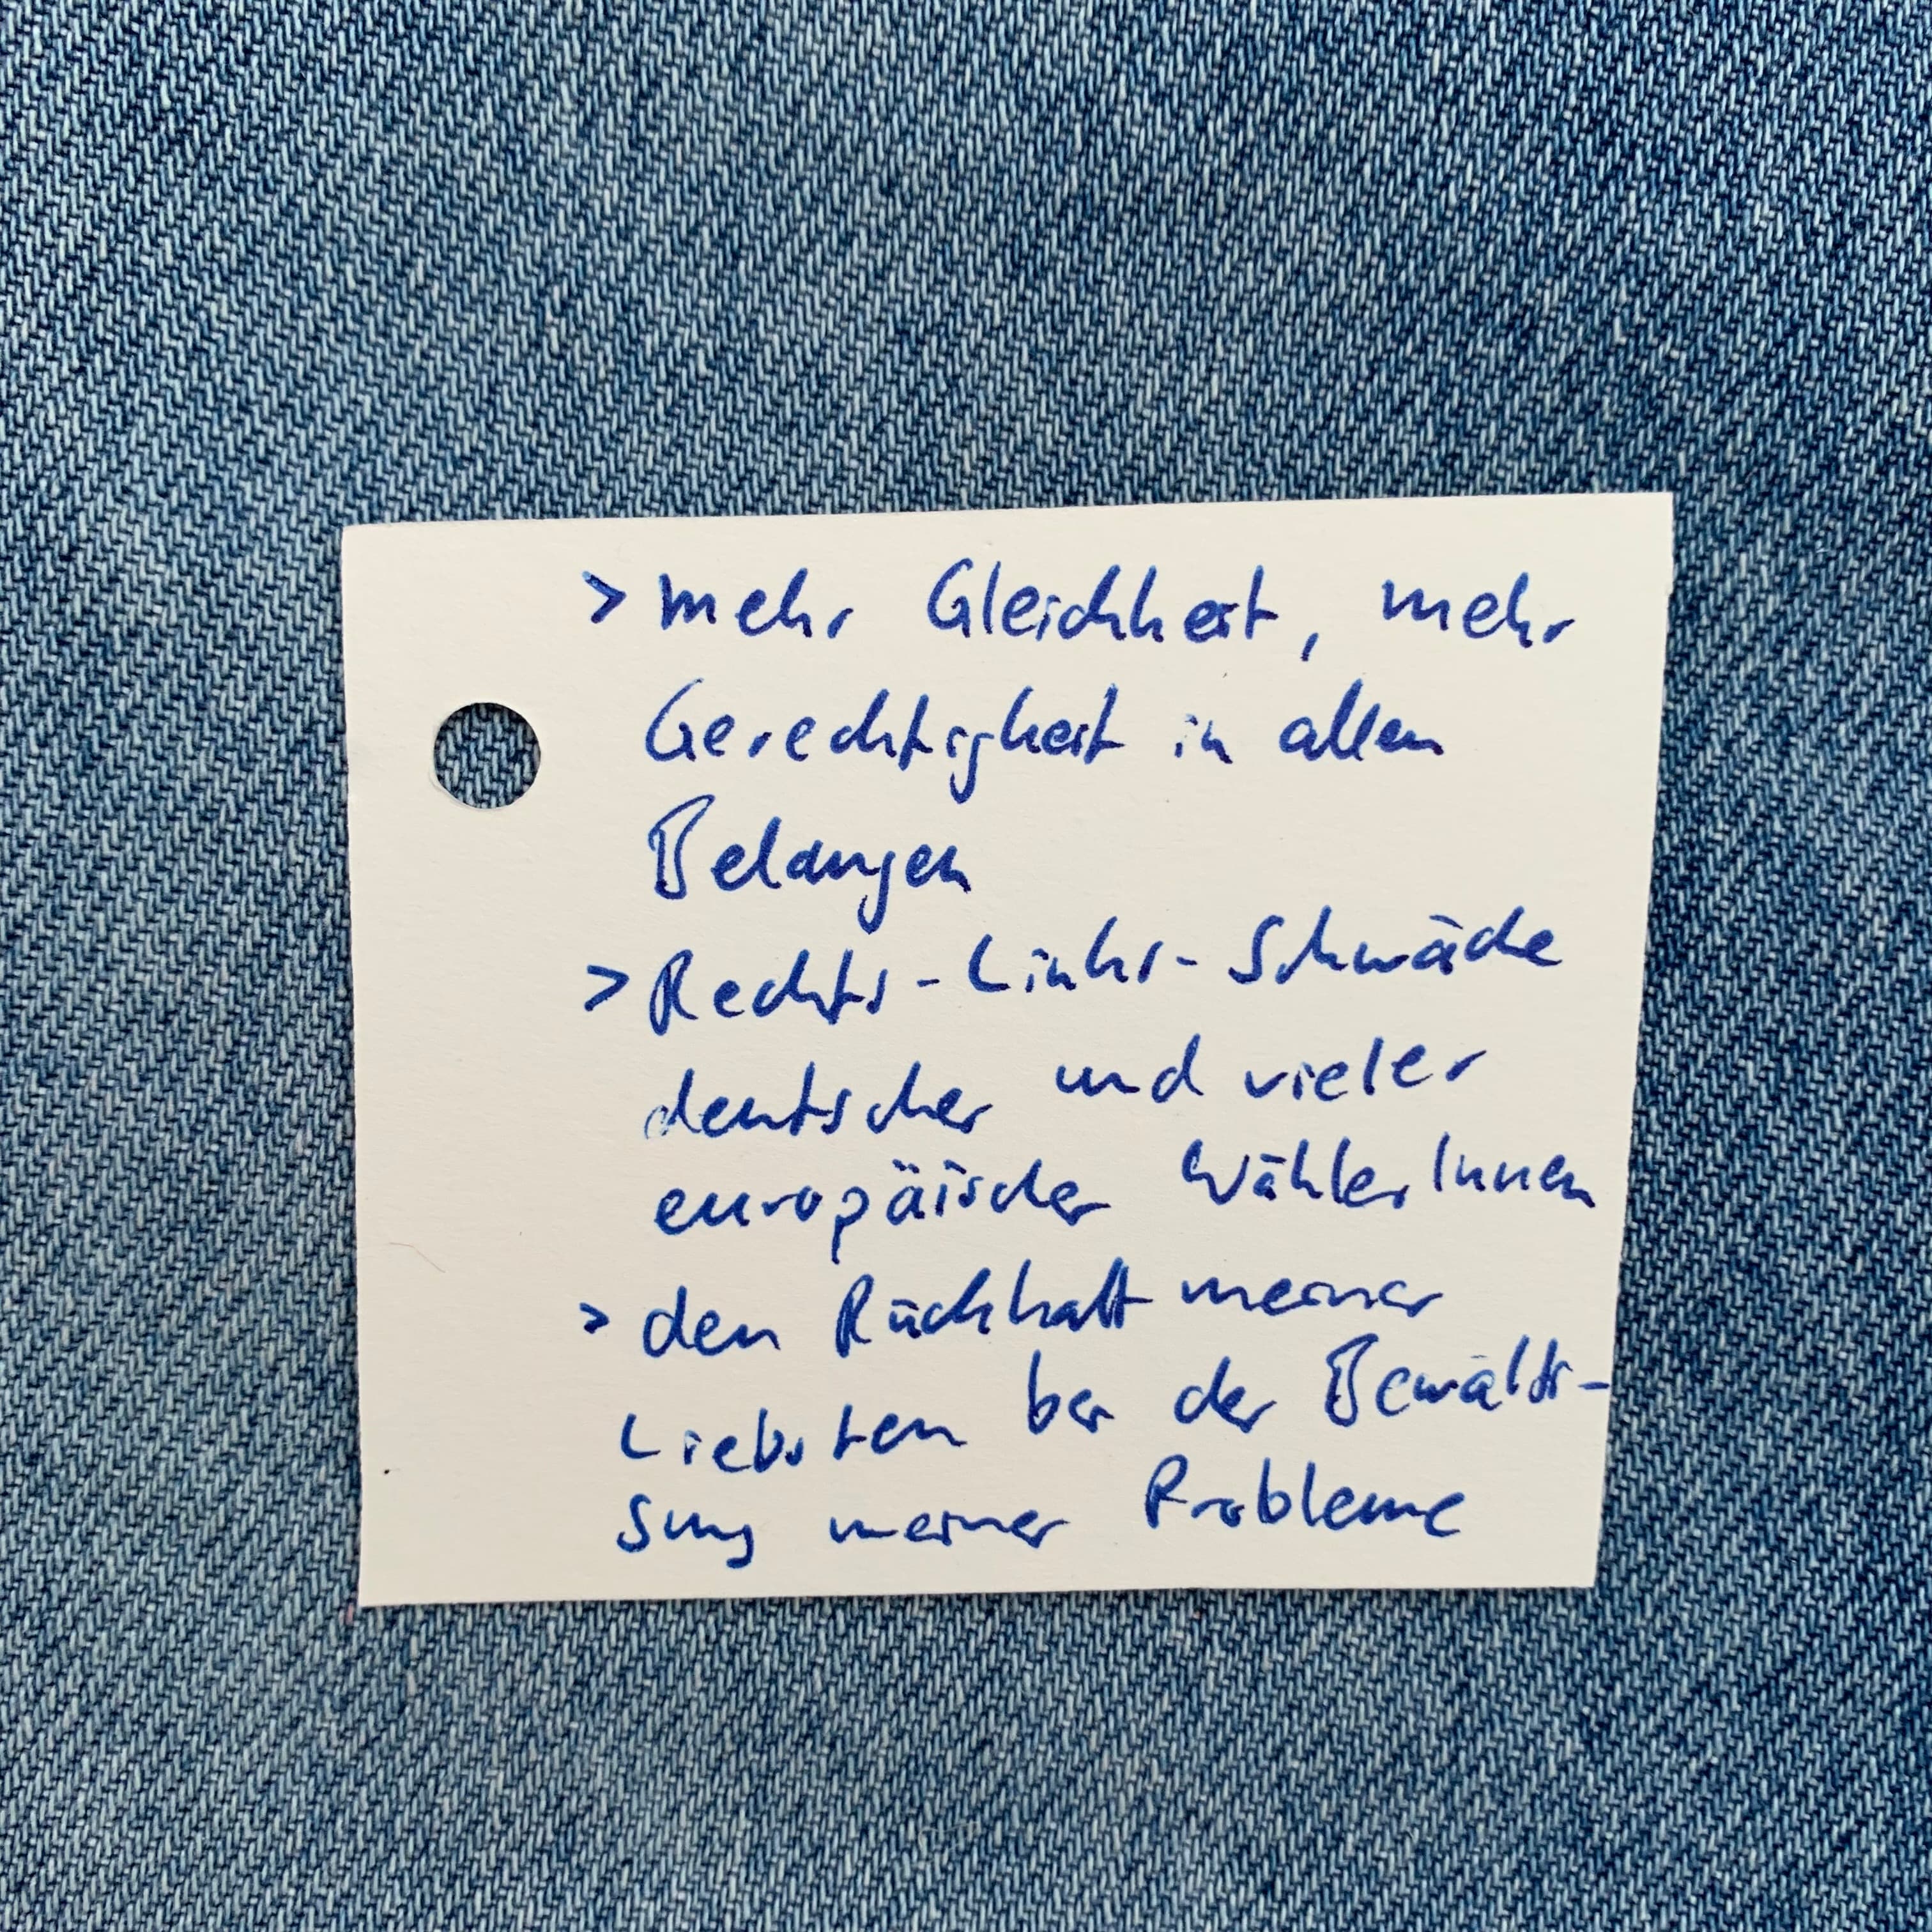 > mehr Gleichheit, mehr
Gerechtigkeit in allen
Belangen
> Rechts-Links-Schwäche
deutscher und vieler
europäischer WählerInnen
> den Rückhalt meiner
Liebsten bei der Bewälti-
gung meiner Probleme